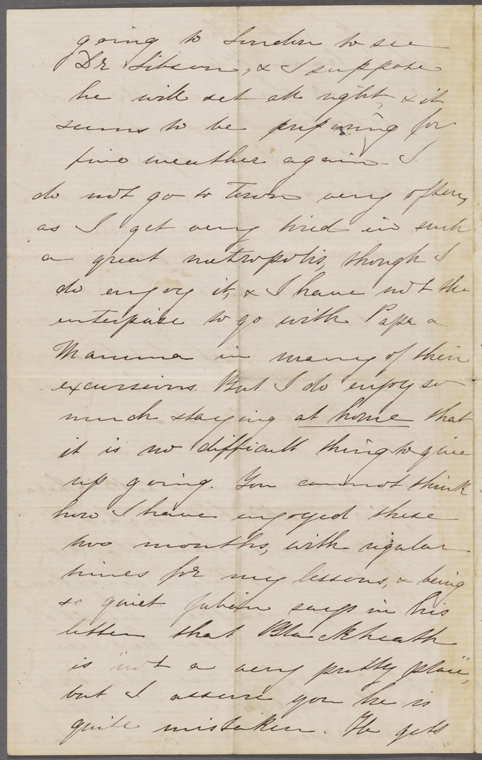 going to London to see
Dr Gibson, & I suppose
he will set all right, & it
seems to be preparing for
fine weather again. I
do not go to town very often,
as I get very tired in such
a great metropolis, though I
do enjoy it, & I have not the
enterprise to go with Papa &
Mamma in many of their
excursions. But I do enjoy so
much staying at home that
it is no difficult thing to give
up going. You cannot think
how I have enjoyed these
two months, with regular
times for my lessons, & being
so quiet Julian says in his
letter that Blackheath
is not a very pretty place,
but I assure you he is
quite mistaken. He gets